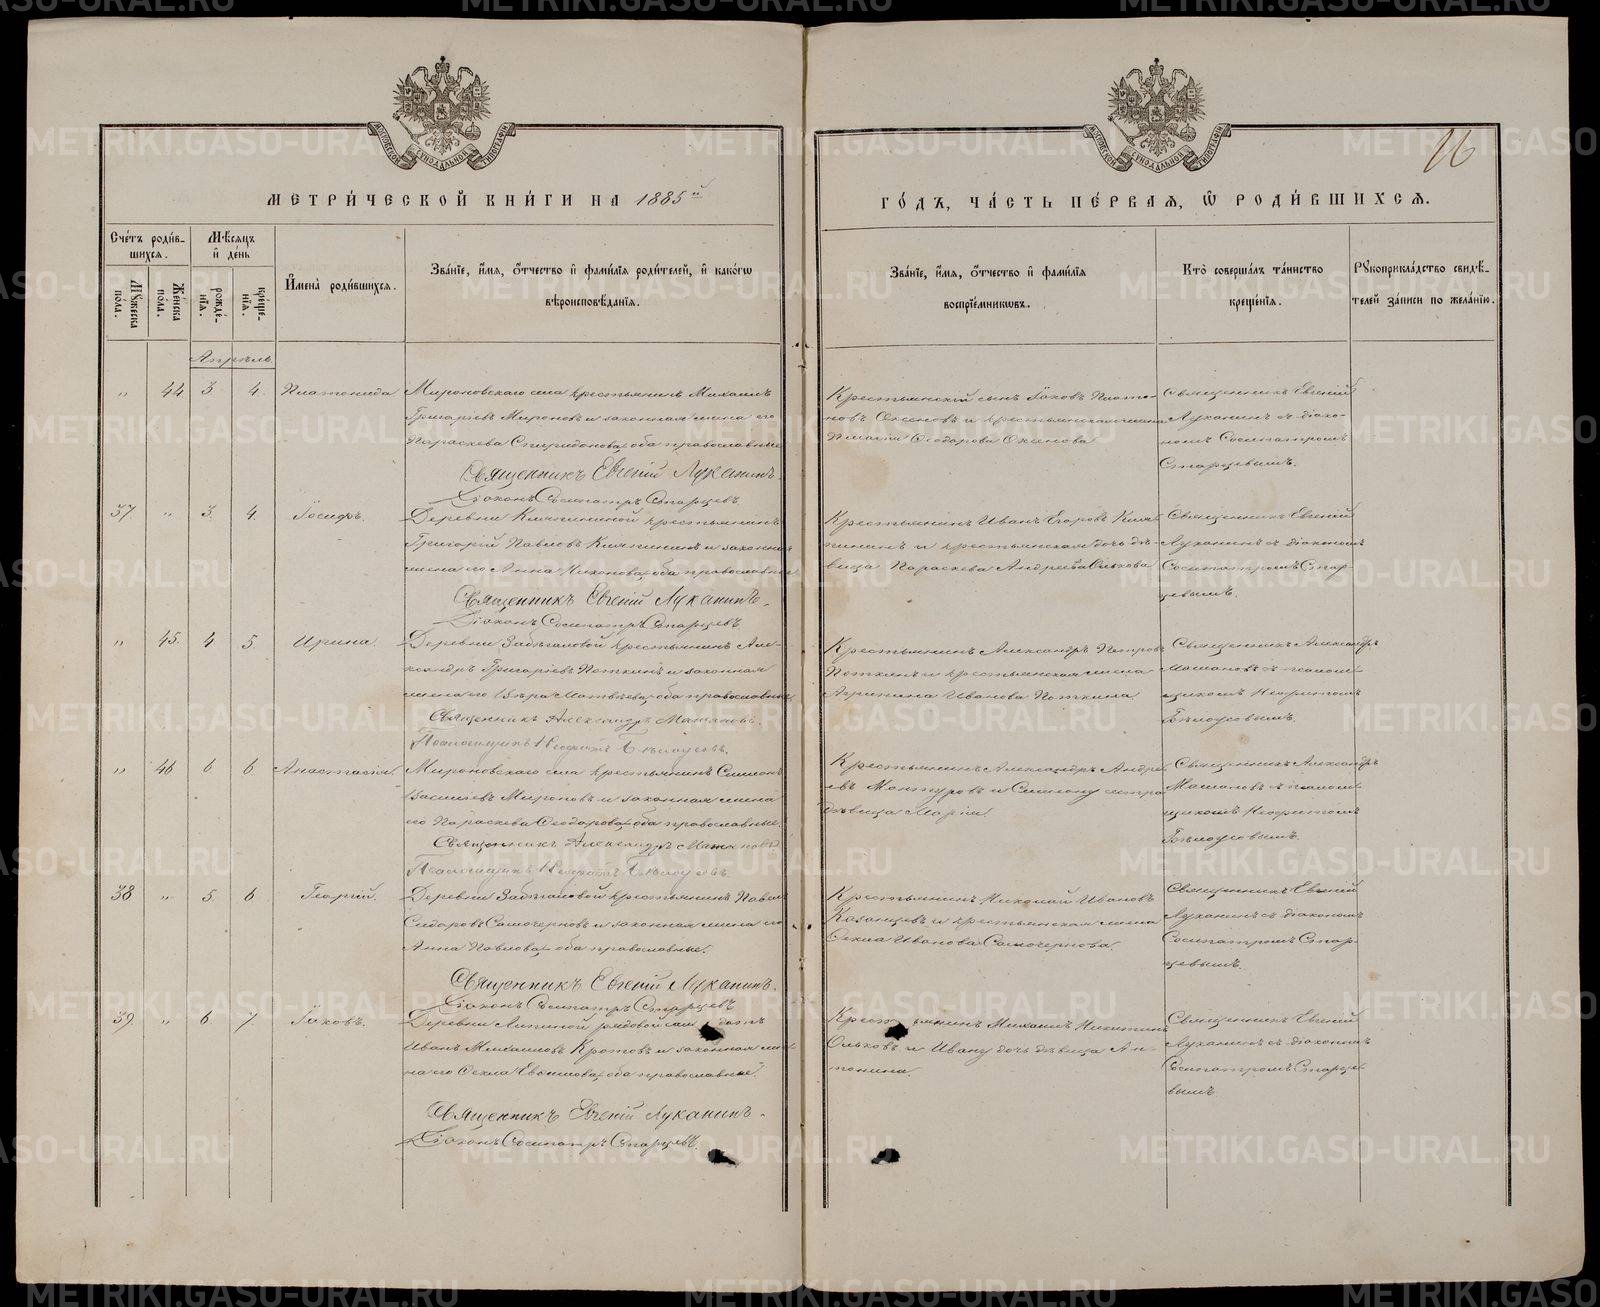 МЕТРИ́ЧЕСКОЙ КНИ́ГИ НА 1885й
ГО́ДЪ, ЧА́СТЬ ПЕ́РВАЯ, Ѿ РОДИ́ВШИХСЯ.
16
Сче́тъ роди́в-
шихся.
Мѣ́сяцъ
и҆ де́нь
И҆мена̀ роди́вшихся.
Зва́нїе, и҆́мя, ѻ҆́тчество и҆ фами́лїя роди́телей, и҆ како́гѡ
вѣроисповѣ́данїя.
Зва́нїе, и҆́мя, ѻ҆́тчество и҆ фами́лїя
воспрїе́мникѡвъ.
Кто̀ соверша́лъ та́инство
креще́нїя.
Рꙋкоприкла́дство свидѣ́-
телей за́писи по жела́нїю.
Мꙋ́жеска
пола.
Же́нска
пола.
рожде́-
нїя.
креще́-
нїя.
Апрѣль.
„ 44 3 4. Платонида Мироновскаго села крестьянинъ Михаилъ
Григорїевъ Мироновъ и законная жена его
Параскева Спиридонова, оба православные
Священникъ Евгенїй Луканинъ.
Дїаконъ Сосипатръ Старцевъ
Крестьянскїй сынъ Їаковъ Плато-
новъ и крестьянская жена
Ѳеодорова
Священникъ Евгенїй
Луканинъ съ дїако-
номъ Сосипатромъ
Старцевымъ.
37 „ 3. 4. Їосифъ. Деревни крестьянинъ
Григорїй Павловъ и законная
жена его Анна оба православные
Священникъ Евгенїй Луканинъ.
Дїаконъ Сосипатръ Старцевъ
Крестьянинъ Иванъ Егоровъ
и крестьянская дочь дѣ-
вица Параскева Андреева Олькова
Священникъ Евгенїй
Луканинъ съ дїакономъ
Сосипатромъ Стар-
цевымъ.
„ 45. 4 5 Ирина. Деревни крестьянинъ Але-
ксандръ Григорїевъ и законная
жена его Вѣра Матвѣева, оба православные
Священникъ Александръ
Псаломщикъ Неофитъ Бѣлоусовъ.
Крестьянинъ Александръ Петровъ
и крестьянская жена
Агрипина Иванова
Священникъ Александръ
съ псалом-
щикомъ Неофитомъ
Бѣлоусовымъ.
„ 46 6 6 Анастасїя. Мироновскаго села крестьянинъ Симеонъ
Васильевъ Мироновъ и законная жена
его Параскева Ѳеодорова, оба православные.
Священникъ Александръ
Псаломщикъ Неофитъ Бѣлоусовъ.
Крестьянинъ Александръ Андре-
евъ Мантуровъ и Симеону сестра
дѣвица Марїя
Священникъ Александръ
съ псалом-
щикомъ Неофитомъ
Бѣлоусовымъ.
38 „ 5. 6 Георгїй. Деревни крестьянинъ Павелъ
Сидоровъ Самочерновъ и законная жена его
Анна Павлова, оба православные.
Священникъ Евгенїй Луканинъ.
Дїаконъ Сосипатръ Старцевъ
Крестьянинъ Николай Ивановъ
Казанцевъ и крестьянская жена
Ѳекла Иванова Самочернова.
Священникъ Евгенїй
Луканинъ съ дїакономъ
Сосипатромъ Стар-
цевымъ.
39. „ 6. 7 Їаковъ. Деревни Липиной рядовой
Иванъ Михаиловъ Кротовъ и законная же-
на его Ѳекла оба православные.
Священникъ Евгенїй Луканинъ.
Дїаконъ Сосипатръ Старцевъ.
Крестьянинъ Михаилъ Никитинъ
Ольковъ и Ивану дочь дѣвица Ан-
тонина.
Священникъ Евгенїй
Луканинъ съ дїакономъ
Сосипатромъ Старце-
вымъ.
METRIKI.GASO-URAL.RU